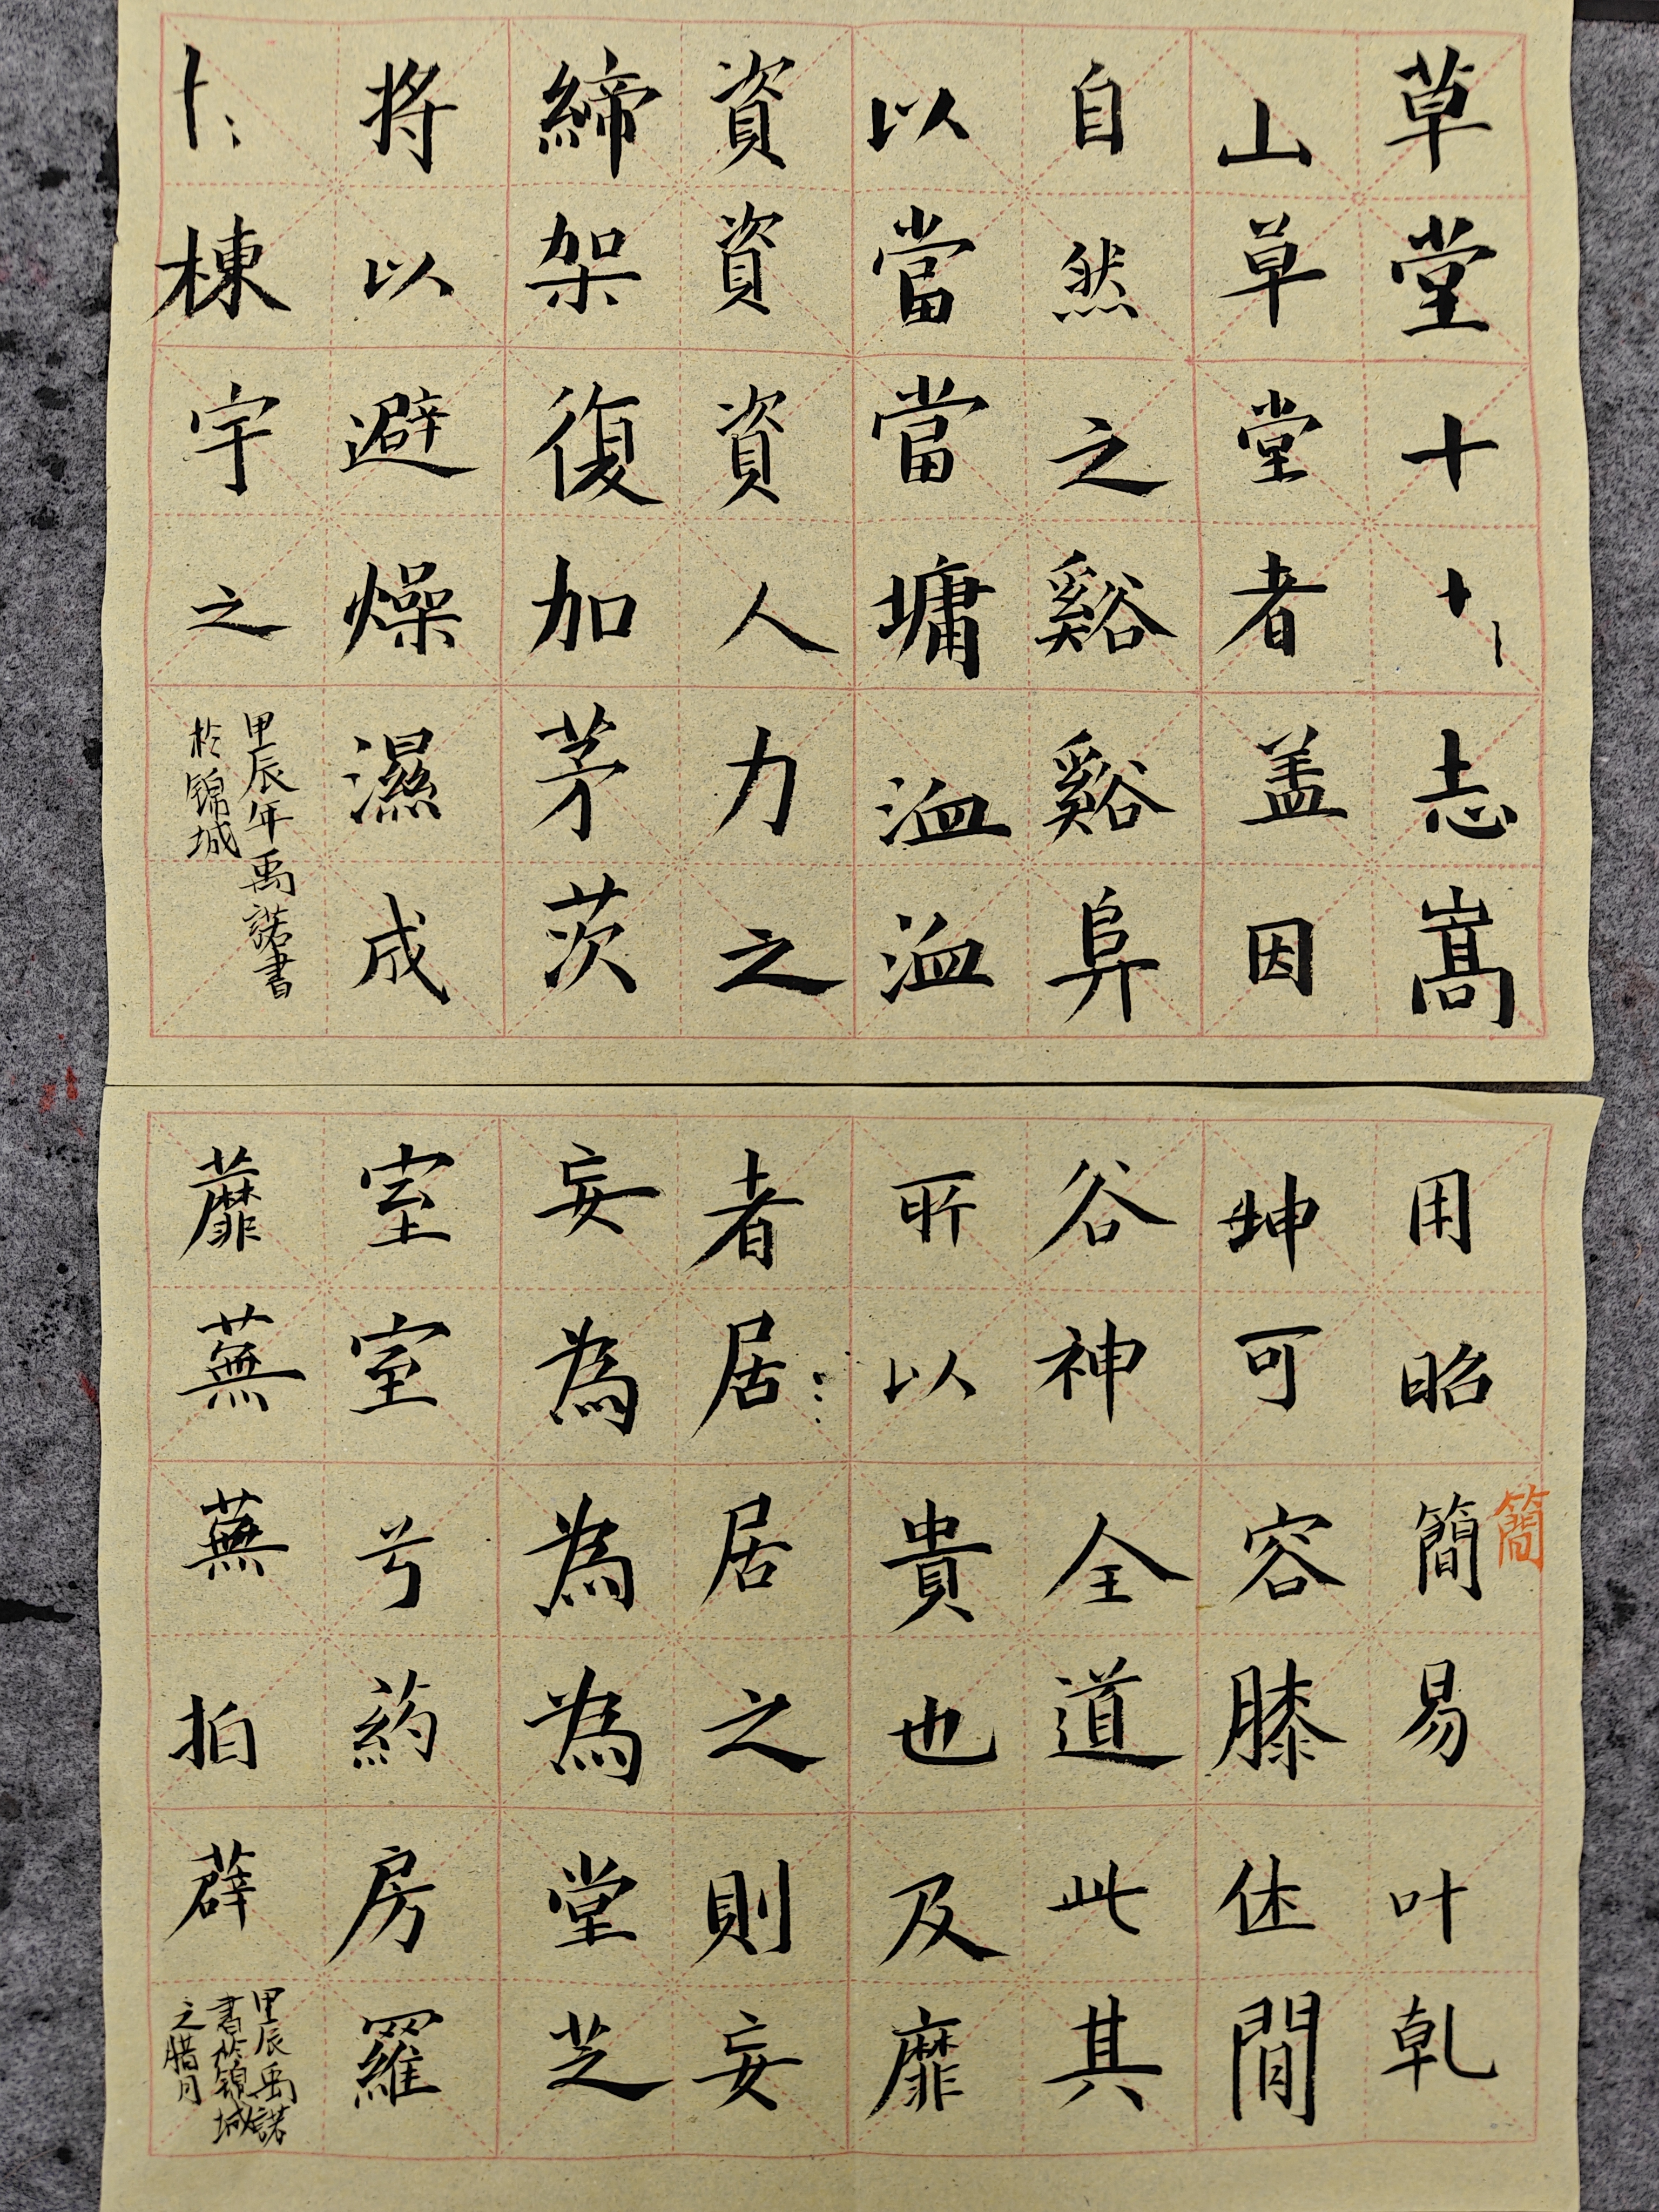 草堂十志嵩
山草堂者盖因
自然之谿谿阜
以當當墉洫洫
資資資人力之
締架復加茅茨
將以避燥濕成
棟宇之
甲辰年禹諾書
於锦城
用昭簡易叶乹
簡
坤可容膝休閒
谷神全道此其
所以貴也及靡
者居居之則妄
妄為為為堂芝
室室兮葯房羅
蘼蕪蕪拍薜
甲辰禹諾
書於锦城
之腊月